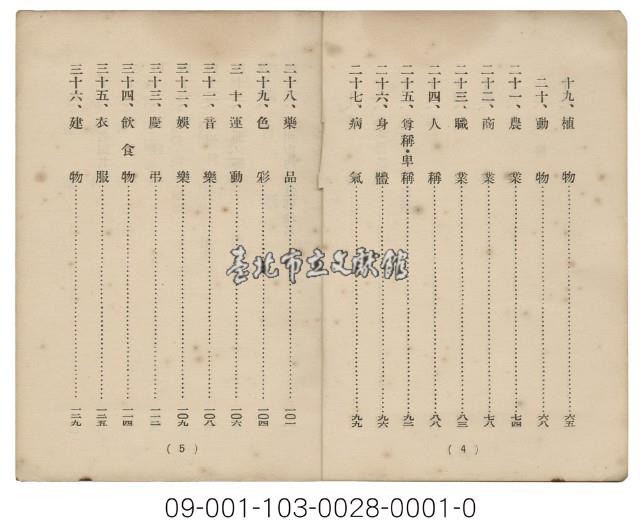 十九、植物………六五
二十、動物………六八
二十一、農業………七四
二十二、商業………七八
二十三、職業………八三
二十四、人稱………八八
二十五、尊稱・卑稱………九三
二十六、身體………九六
二十七、病氣………九九
(4)
二十八、藥品………一〇一
二十九、色彩………一〇四
三十、運動………一〇六
三十一、音樂………一〇八
三十二、娛樂………一〇九
三十三、慶弔………一一二
三十四、飲食物………一一四
三十五、衣服………一二五
三十六、建物………一二九
(5)
臺北市立文獻館
09-001-103-0028-0001-0